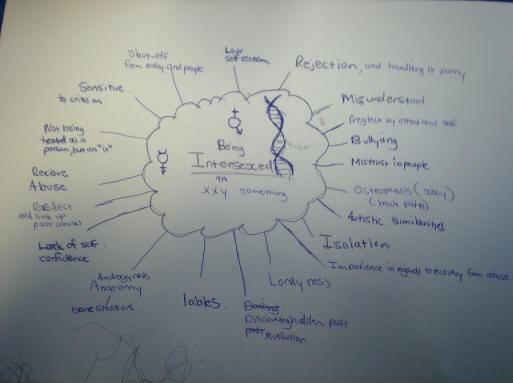 Shut-off
from society and people
Low
self esteem
Rejection, and handling it poorly
Sensitive
to
Misunderstood
neglect by others and self
Not being
treated as a
person, but an "it"
Bullying
Mistrust in people
Being
Intersexed
xxy something
Recieve
Abuse
(xxy)
(back pain)
Autistic similarities
Recollect
and link up
past abuses
Lack of self
confidence
Isolation
Impatience in regards to recovery from abuse
Androgynous
Anatomy
bone structure
lables.
Lonlyness
Discovering hidden past
past Mutilation.